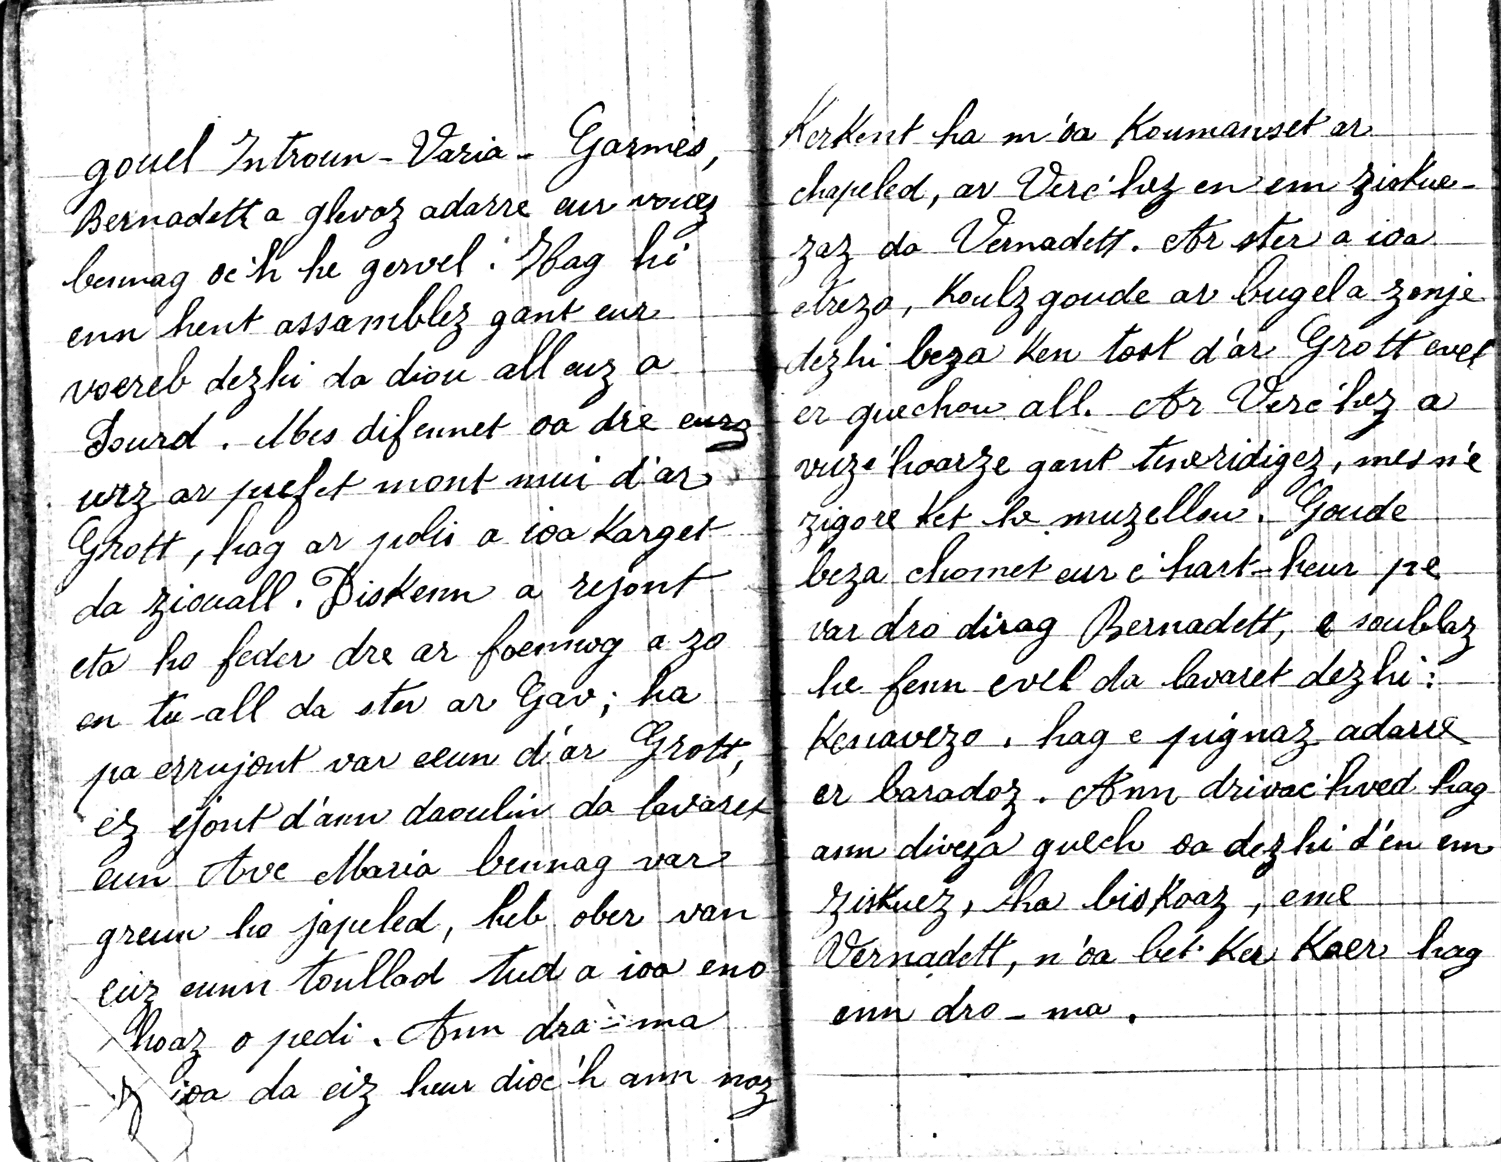 gouel Introun-Varia-Garmes,
Bernadett a glevoz adarre eur vouez
bennag oc'h he gervel. Hag hi
enn hent assamblez gant eur
voereb dezhi da diou all euz a
Lourd. Mes difennet oa dre eurz
urz ar prefet mont mui d'ar
Grott, hag ar polis a ioa Karget
da ziouall. Diskenn a rejont
eta ho feder dre ar foennog a zo
en tu-all da ster ar Gav; ha
pa errujont var eeun d'ar Grott,
ez ejont d'ann daoulin da lavaret
eun Ave Maria bennag var
greun ho japeled, heb ober van
euz eunn toullad tud a ioa eno
hoaz o pedi. Ann dra-ma
a ioa da eiz heur dioc'h ann noz
Kerkent ha m'oa Koumanset ar
chapeled, ar Verc'hez en em ziskue-
zaz da Vernadett. Ar ster a ioa
etrezo, Koulzgoude ar bugel a zonje
dezhi beza Ken tost d'ar Grott evel
er guechou all. Ar Verc'hez a
vuzc'hoarze gant teneridigez, mes n'e
zigore Ket he muzellou. Goude
beza chomet eur c'hart-heur pe
var dro dirag Bernadett, e soublaz
he fenn evel da lavaret dezhi:
Kenavezo, hag e pignaz adarre
er baradoz. Ann drivac'hved hag
ann diveza guech oa dezhi d'en em
ziskuez, ha biskoaz, eme
Vernadett, n'oa bet Ker Kaer hag
enn dro-ma.